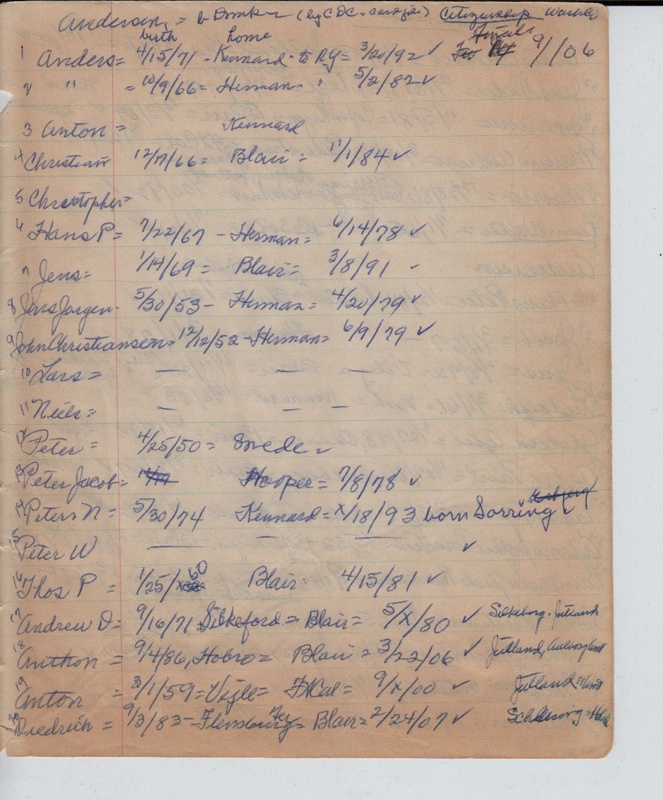 Andersen = b Dmk (by CDC - cardfile) Citizenship
birth home
1 Anders = 4/15/71 - Kennard to RY = 3/20/92 ✓ 9/1/06
2 " = 10/9/66 = Herman " 5/2/82 ✓
3 Anton = Kennard
4 Christian 12/17/66 = Blair = 11/1/84 ✓
5 Christopher =
6 Hans P = 7/22/67 - Herman = 6/14/78 ✓
7 Jens = 1/14/69 = Blair = 3/8/91 ✓
8 Jens Jorgen = 5/30/53 - Herman = 4/20/79 ✓
9 John Christiansen = 12/12/52 - Herman = 6/9/79 ✓
10 Lars = — — —
11 Niels = — — —
12 Peter = 4/25/50 = Swede =
13 Peter Jacob = Hooper = 7/8/78 ✓
14 Peters N = 5/30/74 Kennard = x/18/93 born Sorring
15 Peter W — — — ✓
16 Thos P = 1/25/60 Blair = 4/15/81 ✓
17 Andrew D = 9/16/71 Silkeford = Blair = 5/x/80 ✓ Silkeborg - Jutland
18 Anthon = 9/4/86, Hobro = Blair = 3/22/06 ✓ Jutland, Aalborg
19 Anton = 3/1/59 = Vejle = Ft Cal = 9/x/00 ✓ Jutland
20 Diedrich = 9/3/83 - Flensburg = Blair = 2/24/07 ✓